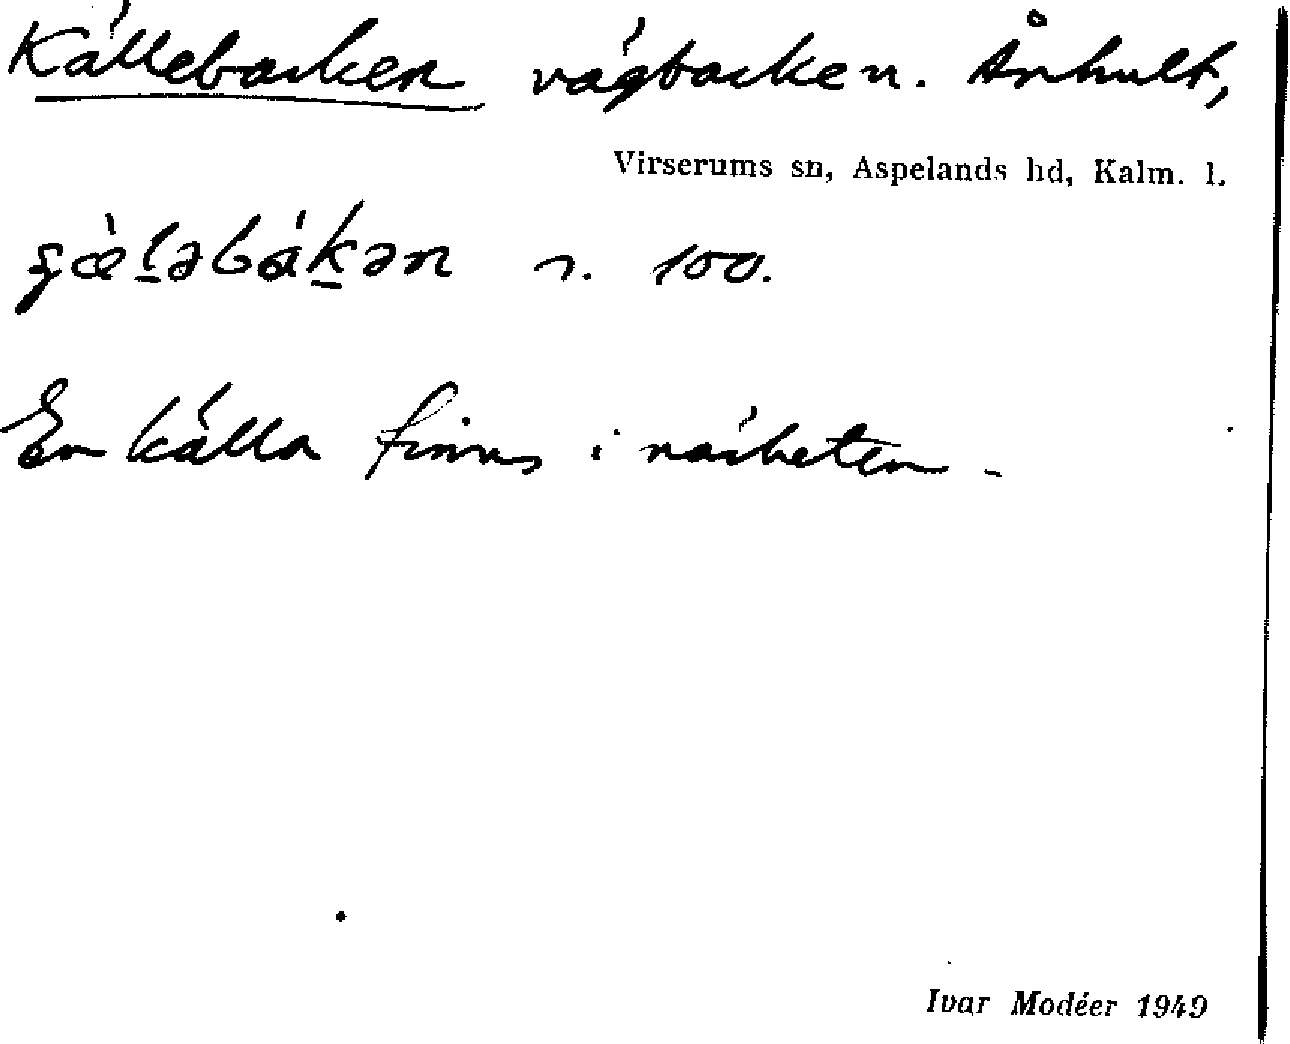 Källebacken vägbacken. Århult,
Virserums sn, Aspelands hd, Kalm. l.
ɕæ̀l̠əbák̠ən r. 100.
En källa finns i närheten.
Ivar Modéer 1949